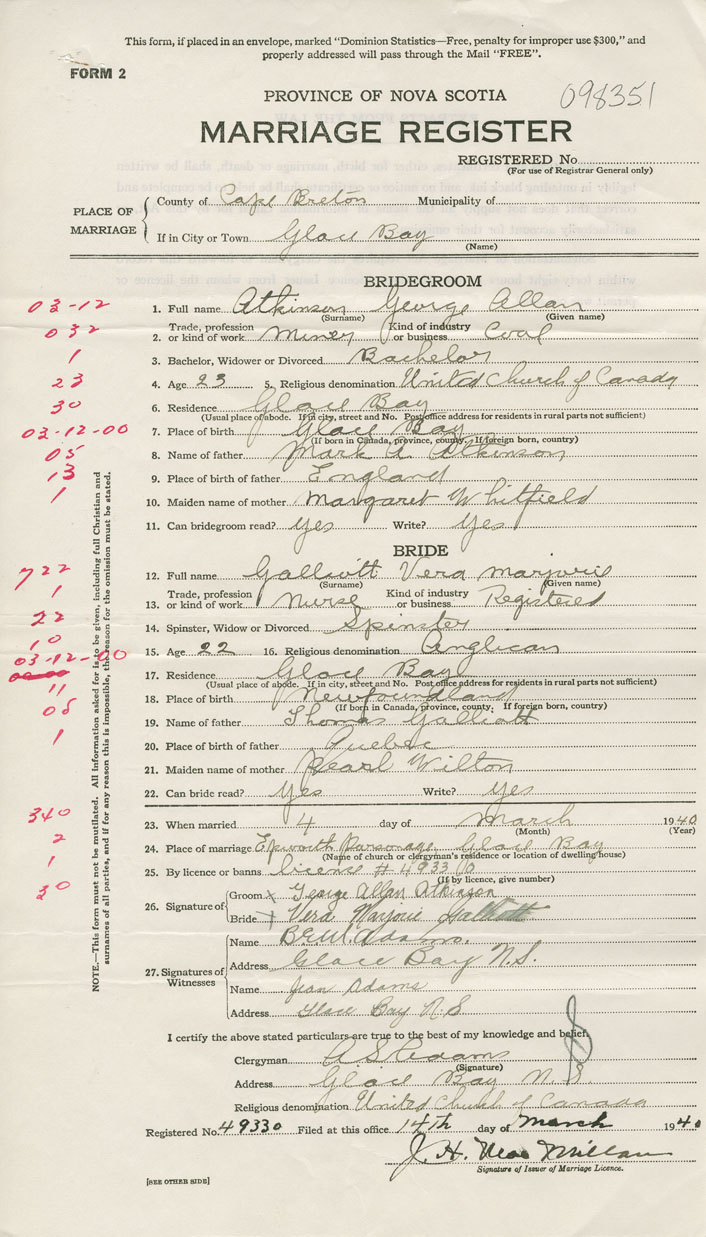 This form, if placed in an envelope, marked "Dominion Statistics—Free, penalty for improper use $300," and
properly addressed will pass through the Mail "FREE".
FORM 2
098351
PROVINCE OF NOVA SCOTIA
MARRIAGE REGISTER
REGISTERED No.
(For use of Registrar General only)
PLACE OF MARRIAGE
County of Cape Breton Municipality of
If in City or Town Glace Bay
(Name)
BRIDEGROOM
03-12 1. Full name Atkinson George Allan
(Surname) (Given name)
032 2. Trade, profession or kind of work Miner Kind of industry or business Coal
1 3. Bachelor, Widower or Divorced Bachelor
23 4. Age 23 5. Religious denomination United Church of Canada
30 6. Residence Glace Bay
(Usual place of abode. If in city, street and No. Post office address for residents in rural parts not sufficient)
03-12-00 7. Place of birth Glace Bay
(If born in Canada, province, county. If foreign born, country)
05 8. Name of father Mark A. Atkinson
13 9. Place of birth of father England
1 10. Maiden name of mother Margaret Whitfield
11. Can bridegroom read? Yes Write? Yes
BRIDE
722 12. Full name Galliott Vera Marjorie
(Surname) (Given name)
1 13. Trade, profession or kind of work Nurse Kind of industry or business Registered
22 14. Spinster, Widow or Divorced Spinster
10 15. Age 22 16. Religious denomination Anglican
03-12-00 17. Residence Glace Bay
(Usual place of abode. If in city, street and No. Post office address for residents in rural parts not sufficient)
11 18. Place of birth Newfoundland
(If born in Canada, province, county. If foreign born, country)
05 19. Name of father Thomas Galliott
1 20. Place of birth of father Quebec
21. Maiden name of mother Pearl Wilton
22. Can bride read? Yes Write? Yes
340 23. When married 4 day of March 1940
(Month) (Year)
2 24. Place of marriage Epworth Parsonage, Glace Bay
(Name of church or clergyman's residence or location of dwelling house)
1 25. By licence or banns licence # 49330
(If by licence, give number)
30 26. Signature of
Groom x George Allan Atkinson
Bride x Vera Marjorie Galliott
27. Signatures of Witnesses
Name
Address Glace Bay N.S.
Name Jean Adams
Address Glace Bay N.S
I certify the above stated particulars are true to the best of my knowledge and belief.
Clergyman A S Adams
(Signature)
Address Glace Bay N.S.
Religious denomination United Church of Canada
Registered No. 49330 Filed at this office 14th day of March 1940
J. H. MacMillan
Signature of Issuer of Marriage Licence.
[SEE OTHER SIDE]
NOTE.—This form must not be mutilated. All information asked for is to be given, including full Christian and
surnames of all parties, and if for any reason this is impossible, the reason for the omission must be stated.